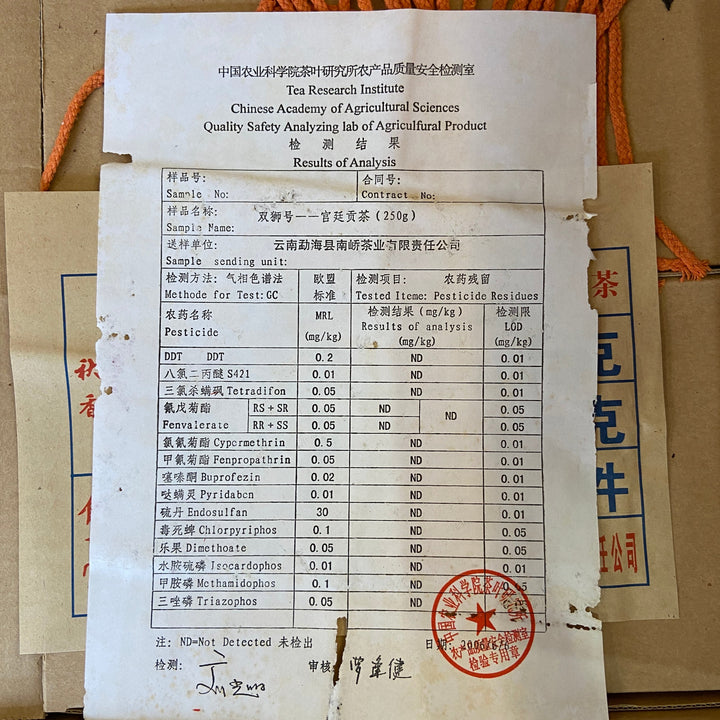 中国农业科学院茶叶研究所农产品质量安全检测室
Tea Research Institute
Chinese Academy of Agricultural Sciences
Quality Safety Analyzing lab of Agriculfural Product
检 测 结 果
Results of Analysis
样品号: 合同号:
Sample No: Contract No:
样品名称: 双狮号——宫廷贡茶(250g)
Sample Name:
送样单位: 云南勐海县南峤茶业有限责任公司
Sample sending unit:
检测方法: 气相色谱法 欧盟 检测项目: 农药残留
Methode for Test:GC 标准 Tested Iteme: Pesticide Residues
农药名称 MRL 检测结果(mg/kg) 检测限
Pesticide (mg/kg) Results of analysis LOD
(mg/kg) (mg/kg)
DDT DDT 0.2 ND 0.01
八氯二丙醚 S421 0.01 ND 0.01
三氯杀螨砜 Tetradifon 0.05 ND 0.01
氰戊菊酯 RS+SR 0.05 ND ND 0.05
Fenvalerate RR+SS 0.05 ND 0.05
氯氰菊酯 Cypermethrin 0.5 ND 0.01
甲氰菊酯 Fenpropathrin 0.05 ND 0.01
噻嗪酮 Buprofezin 0.02 ND 0.01
哒螨灵 Pyridaben 0.01 ND 0.01
硫丹 Endosulfan 30 ND 0.01
毒死蜱 Chlorpyriphos 0.1 ND 0.05
乐果 Dimethoate 0.05 ND 0.05
水胺硫磷 Isocardophos 0.01 ND 0.01
甲胺磷 Methamidophos 0.1 ND
三唑磷 Triazophos 0.05 ND
注: ND=Not Detected 未检出 日期:
检测: 审核:
中国农业科学院茶叶研究所
农产品质量安全检测室
检验专用章
茶
克
克
件
任公司
香